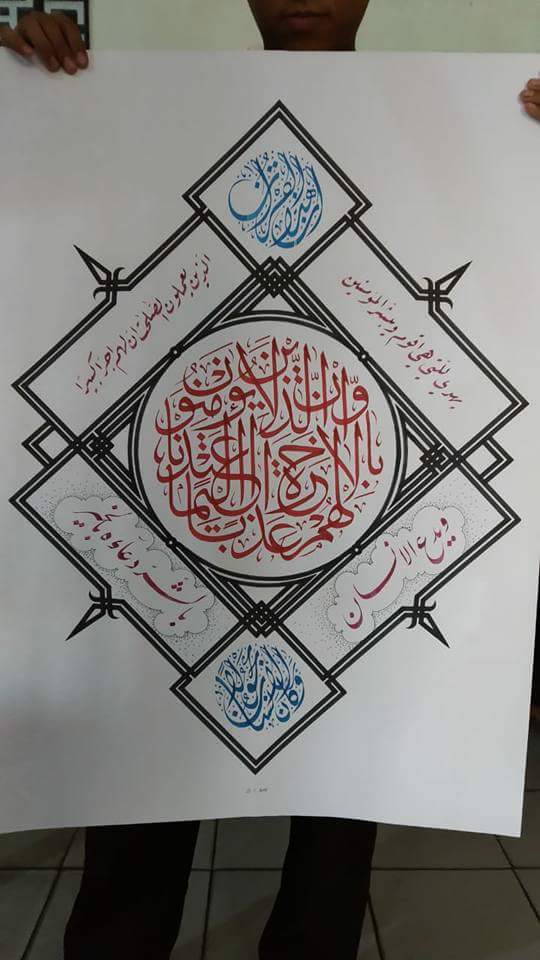 إن هذا القرآن
يهدي للتي هي اقوم ويبشر المؤمنين
الذين يعملون الصلحت ان لهم اجرا كبيرا
وَأَنَّ الَّذِينَ لَا يُؤْمِنُونَ
بِالْآخِرَةِ أَعْتَدْنَا
لَهُمْ عَذَابًا أَلِيمًا
ويدع الانسان
بالشر دعاءه بالخير
وكان الانسان عجولا